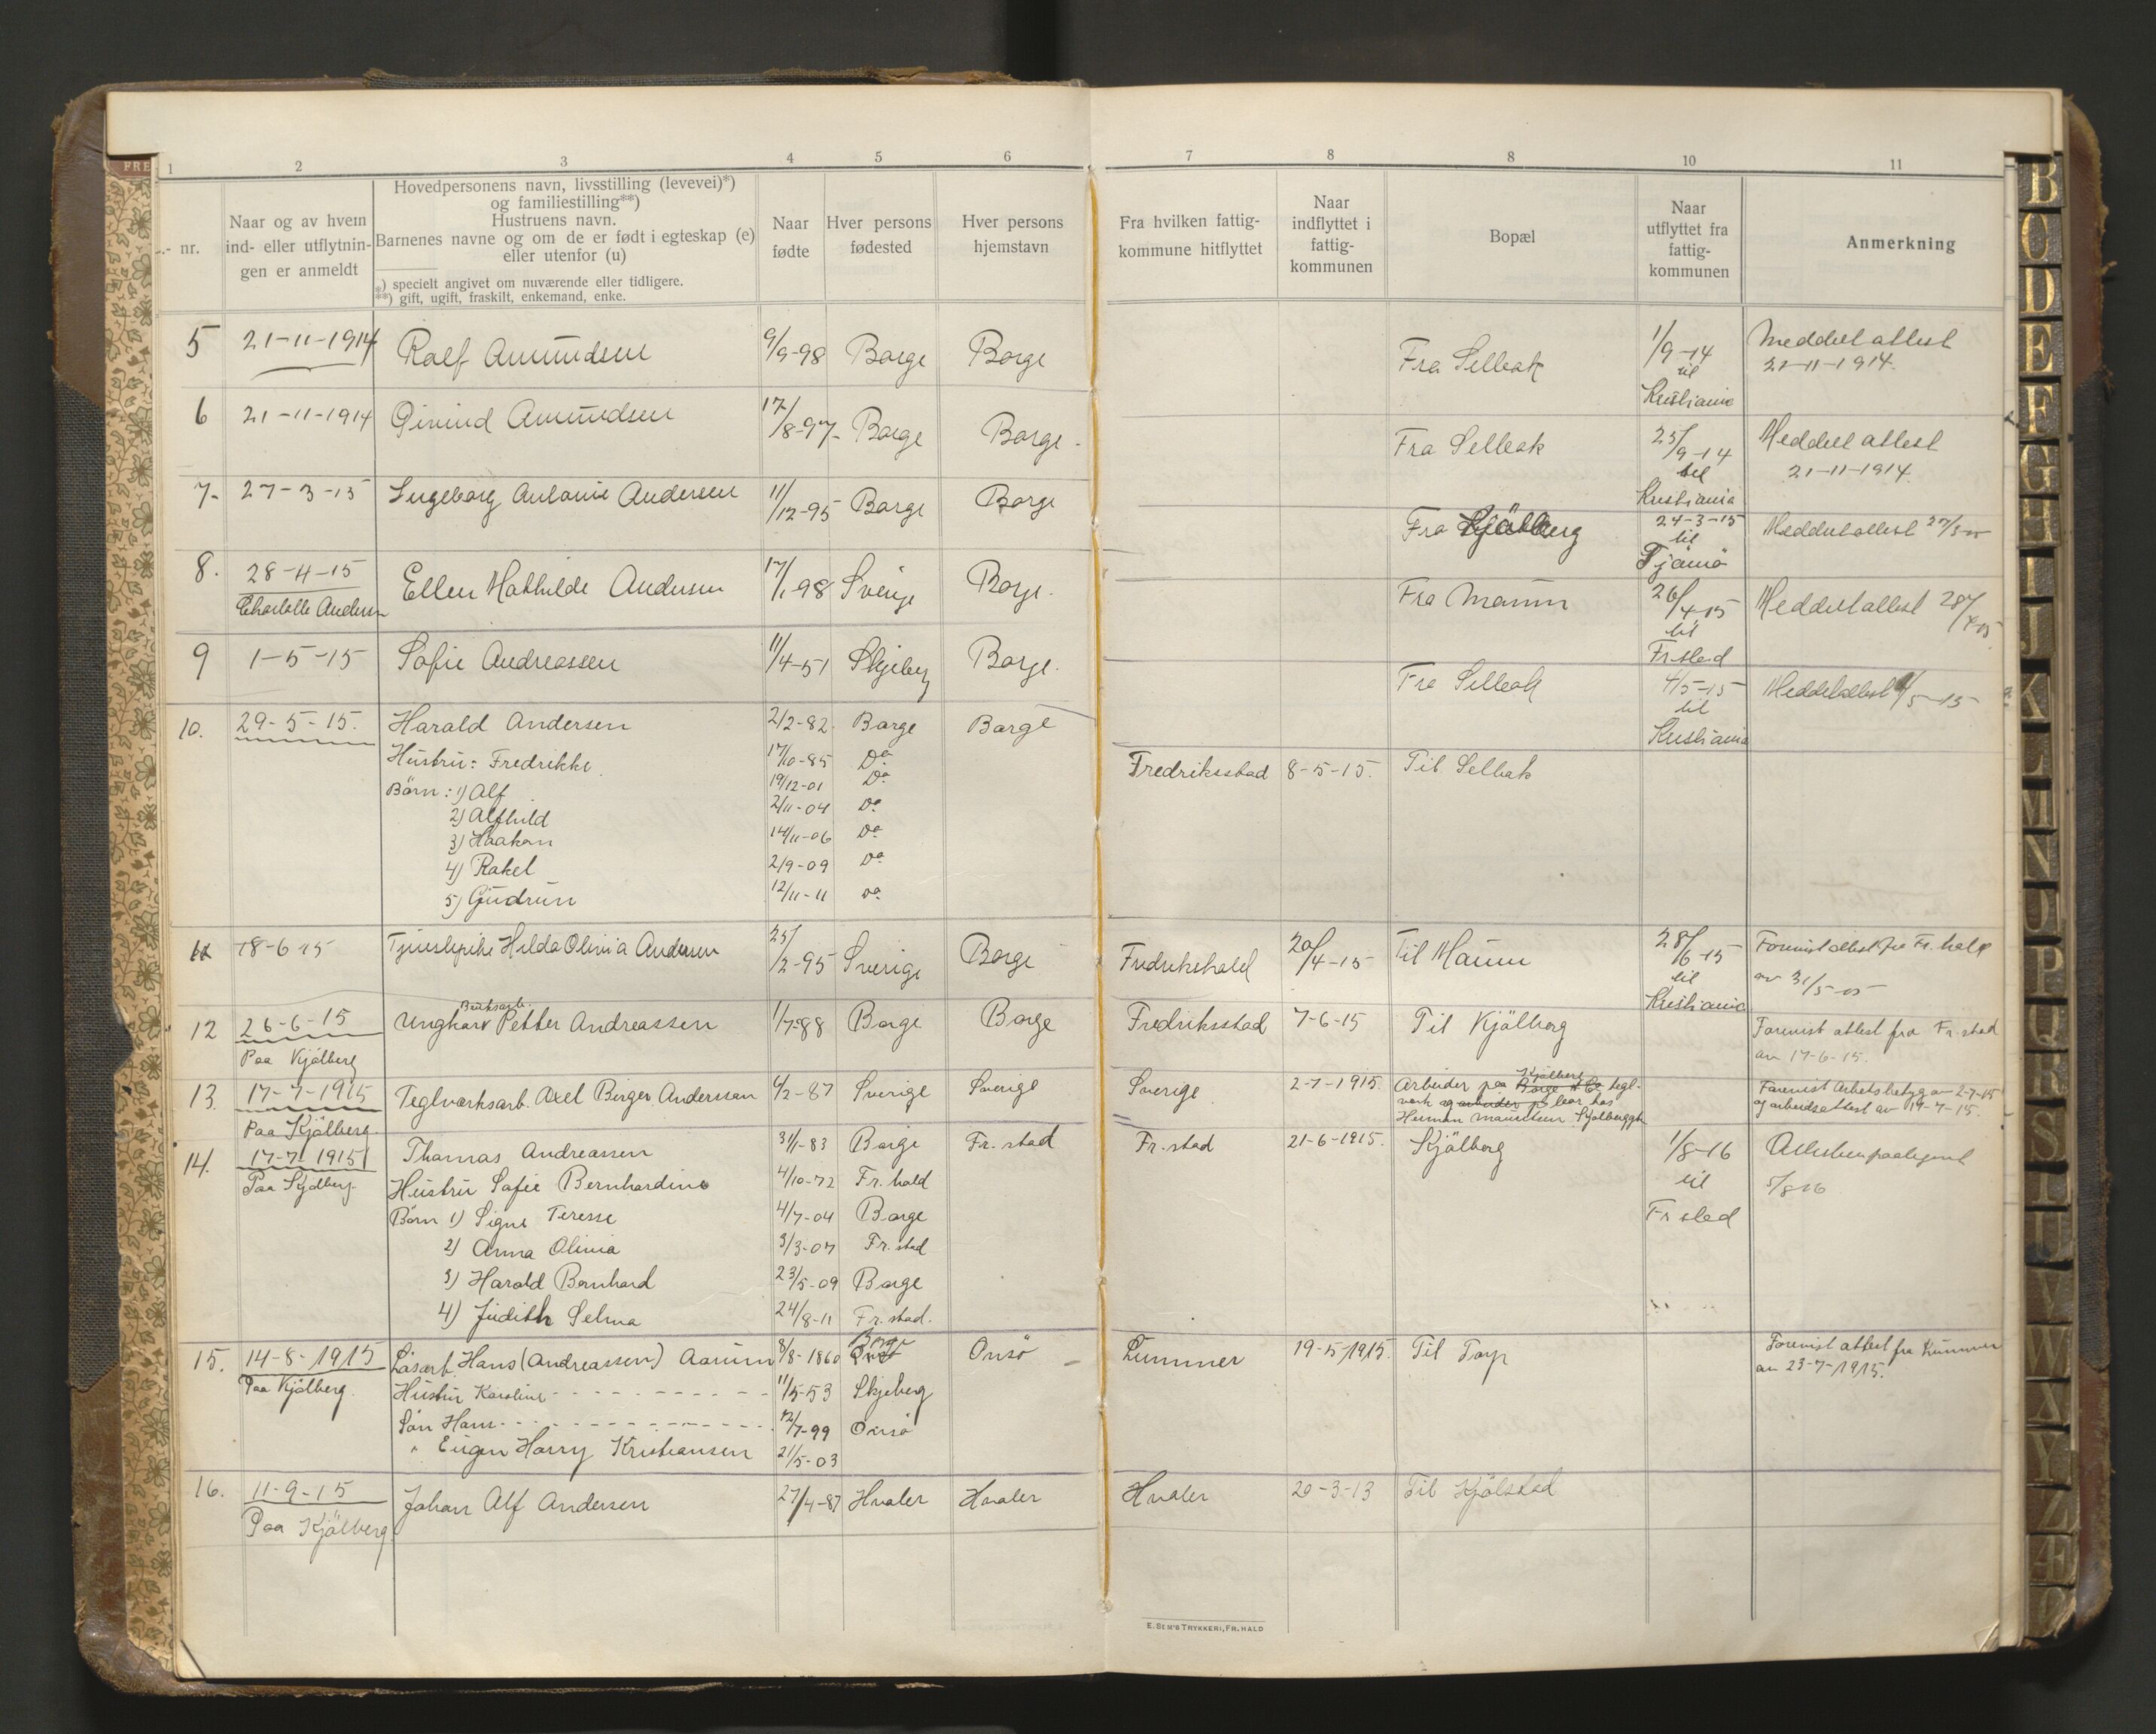 FRE
1 2 3 4 5 6 7 8 8 10 11
nr.
Naar og av hvem
ind- eller utflytnin-
gen er anmeldt
Hovedpersonens navn, livsstilling (levevei)*)
og familiestilling**)
Hustruens navn.
Barnenes navne og om de er født i egteskap (e)
eller utenfor (u)
*) specielt angivet om nuværende eller tidligere.
**) gift, ugift, fraskilt, enkemand, enke.
Naar
fødte
Hver persons
fødested
Hver persons
hjemstavn
Fra hvilken fattig-
kommune hitflyttet
Naar
indflyttet i
fattig-
kommunen
Bopæl
Naar
utflyttet fra
fattig-
kommunen
Anmerkning
5 21-11-1914 Ralf Amundsen 9/9-98 Borge Borge Fra Selbak 1/9-14 Meddelt attest
til 21-11-1914.
Kristiania
6 21-11-1914 Øivind Amundsen 17/8-97- Borge Borge Fra Selbak 25/9-14 Meddelt attest
til 21-11-1914
Kristiania
7- 27-3-15 Ingeborg Antonie Andersen 11/12-95 Borge Borge Fra Kjölberg 24-3-15 Meddelt attest
til
Tjömö
8. 28-4-15 Ellen Mathilde Andersen 17/1-98 Sverige Borge. Fra Maum 26/4-15 Meddelt attest 28/4-15
Charlotte Andersen til
Fr.stad
9 1-5-15 Sofie Andreassen 11/4-51 Skjeberg Borge. Fra Selbak 4/5-15 Meddelt attest 4/5-15
til
Kristiania
10. 29-5-15. Harald Andersen 2/2-82. Borge Borge Fredriksstad 8-5-15. Til Selbak
Hustru: Fredrikke. 17/10-85 Do
Börn: 1) Alf 19/12-01 Do
2) Alfhild 2/11-04 Do
3) Haakon 14/11-06 Do
4) Rakel 2/9-09 Do
5) Gudrun 12/11-11 Do
11 18-6-15 Tjenestepike Hilda Olivia Andersen 25/2-95 Sverige Borge Fredrikshald 20/4-15 Til Maum 28/6-15 Forevist attest fra Fr.hald
til av 31/5-15
Kristiania
Bruksarb.
12 26-6-15 Ungkarv Petter Andreassen 1/7-88 Borge Borge Fredriksstad 7-6-15 Til Kjölberg Forevist attest fra Fr.stad
Paa Kjölberg av 17-6-15.
13. 17-7-1915 Teglverksarb. Axel Birger Anderssan 6/2-87 Sverige Sverige Sverige 2-7-1915. Arbeider paa Kjölberg tegl- Forevist Arbetsbetyg av 2-7-15
Paa Kjölberg verk og bor hos og arbeidsattest av 17-7-15.
Herman
14. 17-7-1915 Thomas Andreassen 31/1-83 Borge Fr.stad Fr.stad 21-6-1915. Kjölberg 1/8-16
Paa Kjölberg Hustru Sofie Bernhardine 4/10-72 Fr.hald til 5/8 16
Börn 1) Signe Teresse 4/7-04 Borge Fr stad
2) Anna Olivia 3/3-07 Fr.stad
3) Harald Bernhard 23/5-09 Borge
4) Judith Selma 24/8-11 Fr.stad.
15. 14-8-1915 Lösarb. Hans (Andreassen) Aarum 8/8-1860 Borge Onsö Lummer 19-5-1915. Til Torp Forevist attest fra
Paa Kjölberg. Hustru Karoline 11/5-53 Skjeberg av 23-7-1915.
Sön Hans 12/7-99 Onsö
" Eugen Harry Kristiansen 21/5-03
16. 11-9-15 Johan Alf Andersen 27/4-87 Hvaler Hvaler Hvaler 20-3-13 Til Kjölstad
Paa Kjölberg
E. SEM'S TRYKKERI, FR.HALD
B
O
D
E
F
G
H
I
J
K
L
M
N
O
P
Q
R
S
T
U
V
W
X
Y
Z
Æ